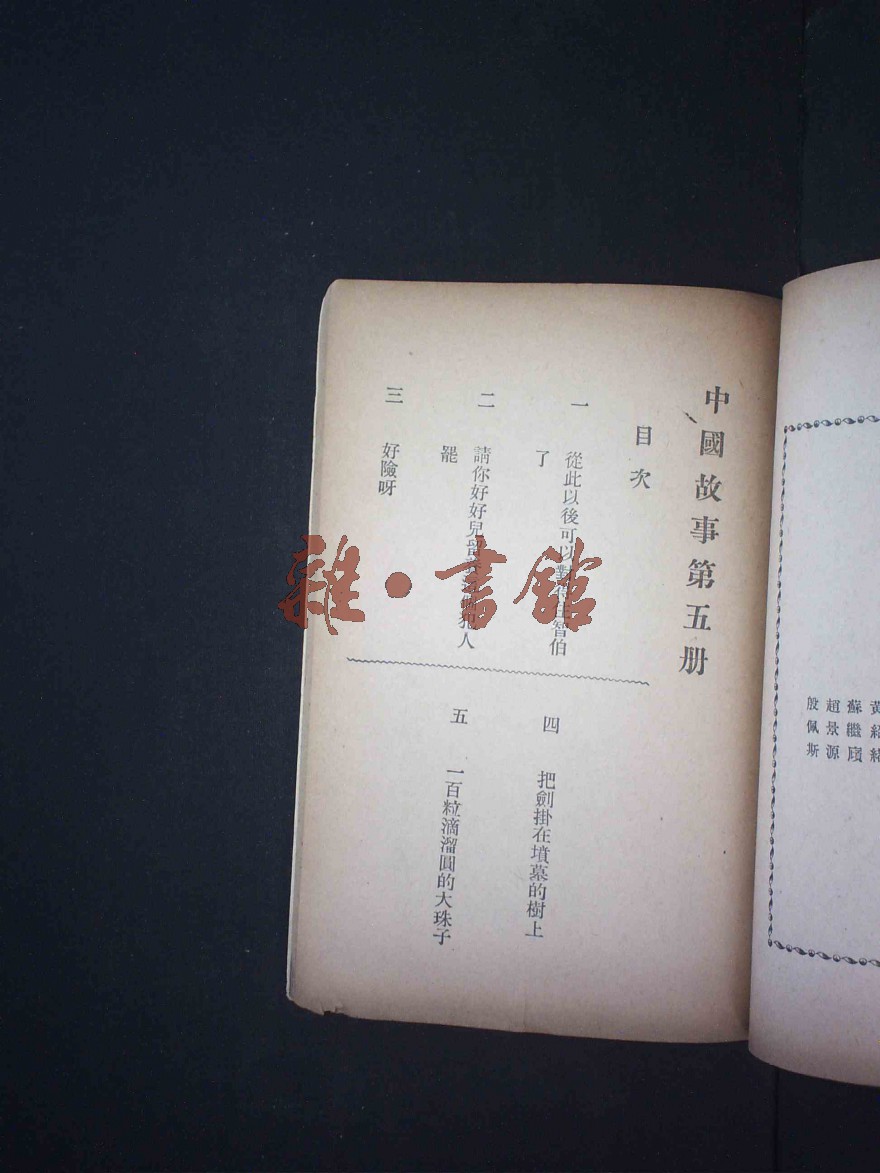 中國故事第五册
目次
一 從此以後可以對得住智伯
了
二 請你好好兒留
犯人
罷
三 好險呀
四 把劍掛在墳墓的樹上
五 一百粒滴溜圓的大珠子
雜·書館
蘇繼廎
趙景源
殷佩斯